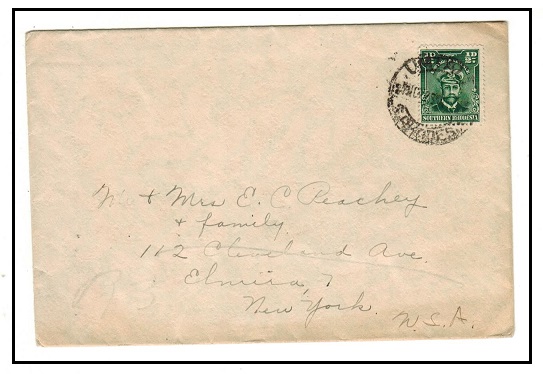 ½D ½D
SOUTHERN RHODESIA
Mr + Mrs E. C. Peachey
+ family.
112 Cleveland Ave.
Elmira,
New York.
U.S.A.